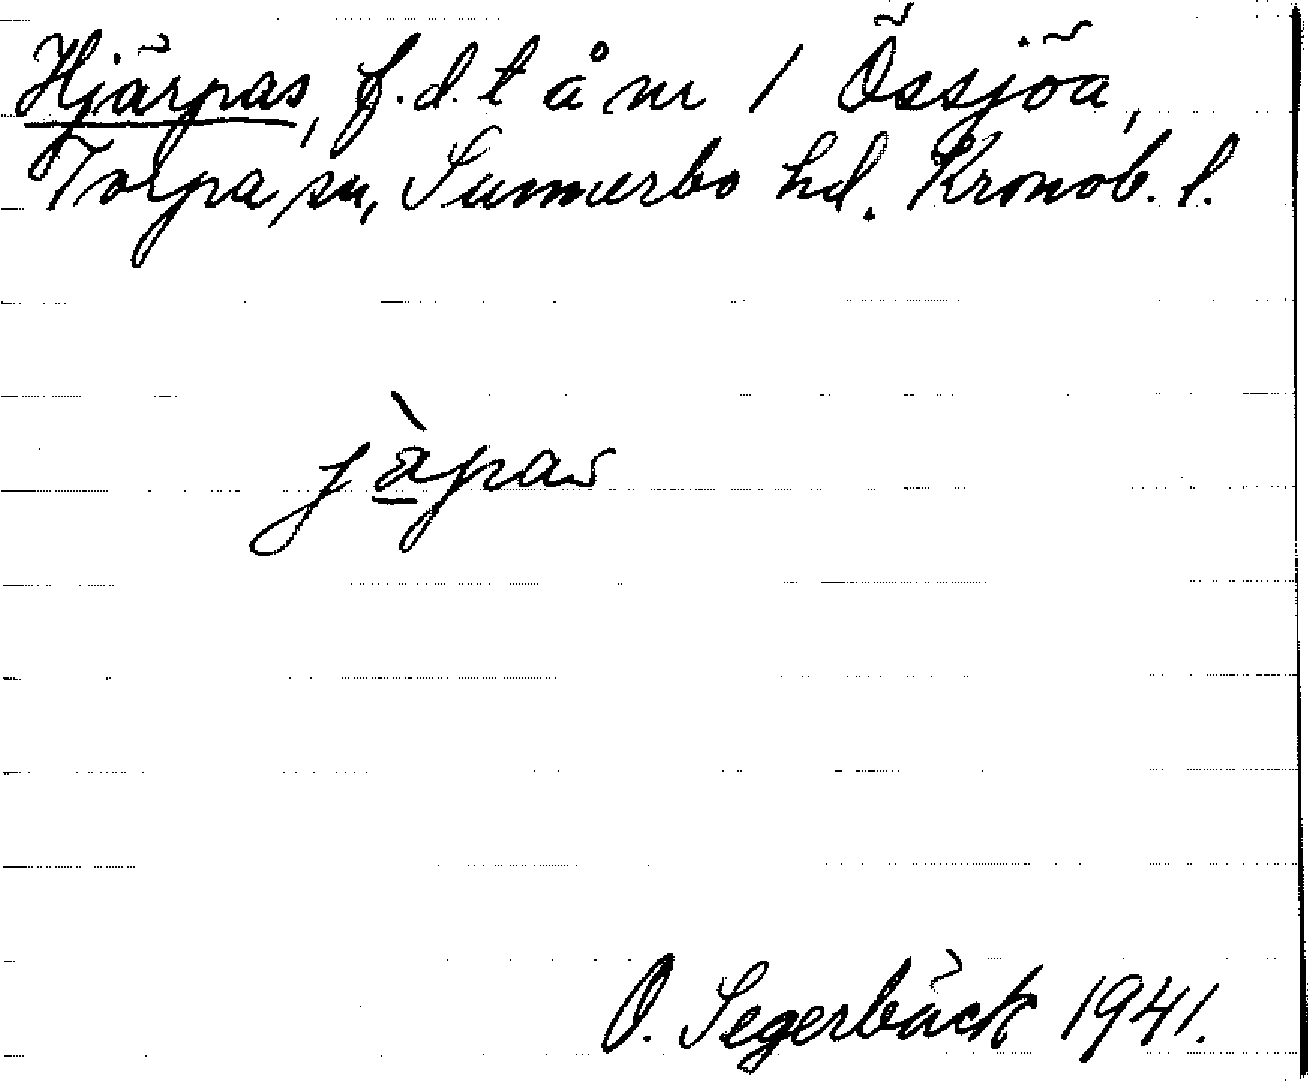 Hjärpas, f.d. t å nr 1 Össjöa,
Torpa sn, Sunnerbo hd. Kronob. l.
jàpas
O. Segerbäck 1941.